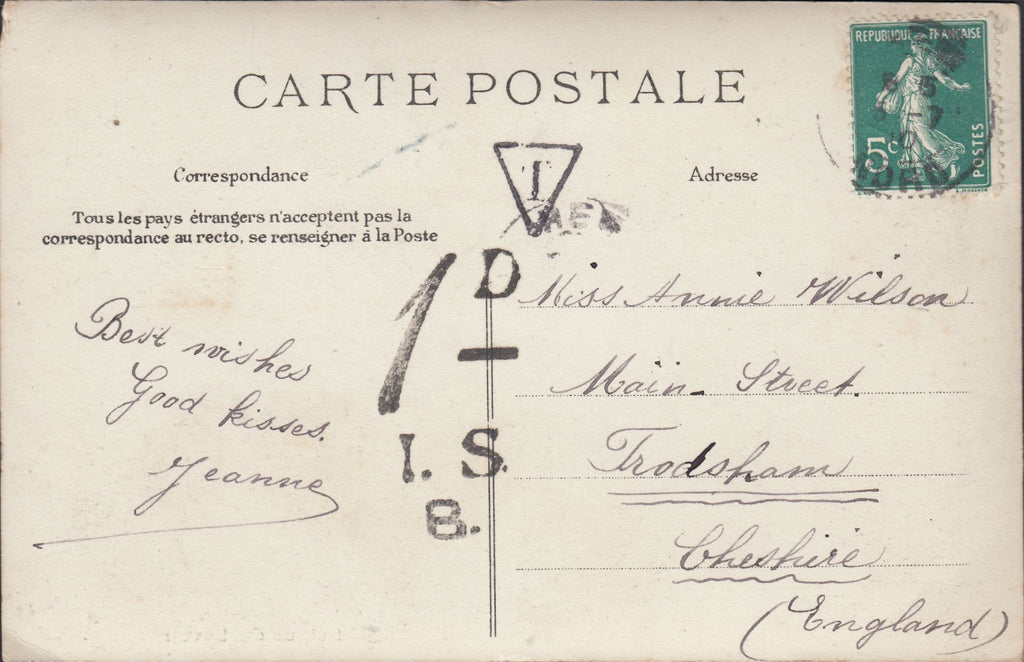 CARTE POSTALE
REPUBLIQUE FRANÇAISE
5c
POSTES
T
Correspondance
Adresse
Tous les pays étrangers n'acceptent pas la
correspondance au recto, se renseigner à la Poste
1 D
I. S.
B.
Best wishes
Good kisses.
Jeanne
Miss Annie Wilson
Main Street.
Frodsham
Cheshire
(England)